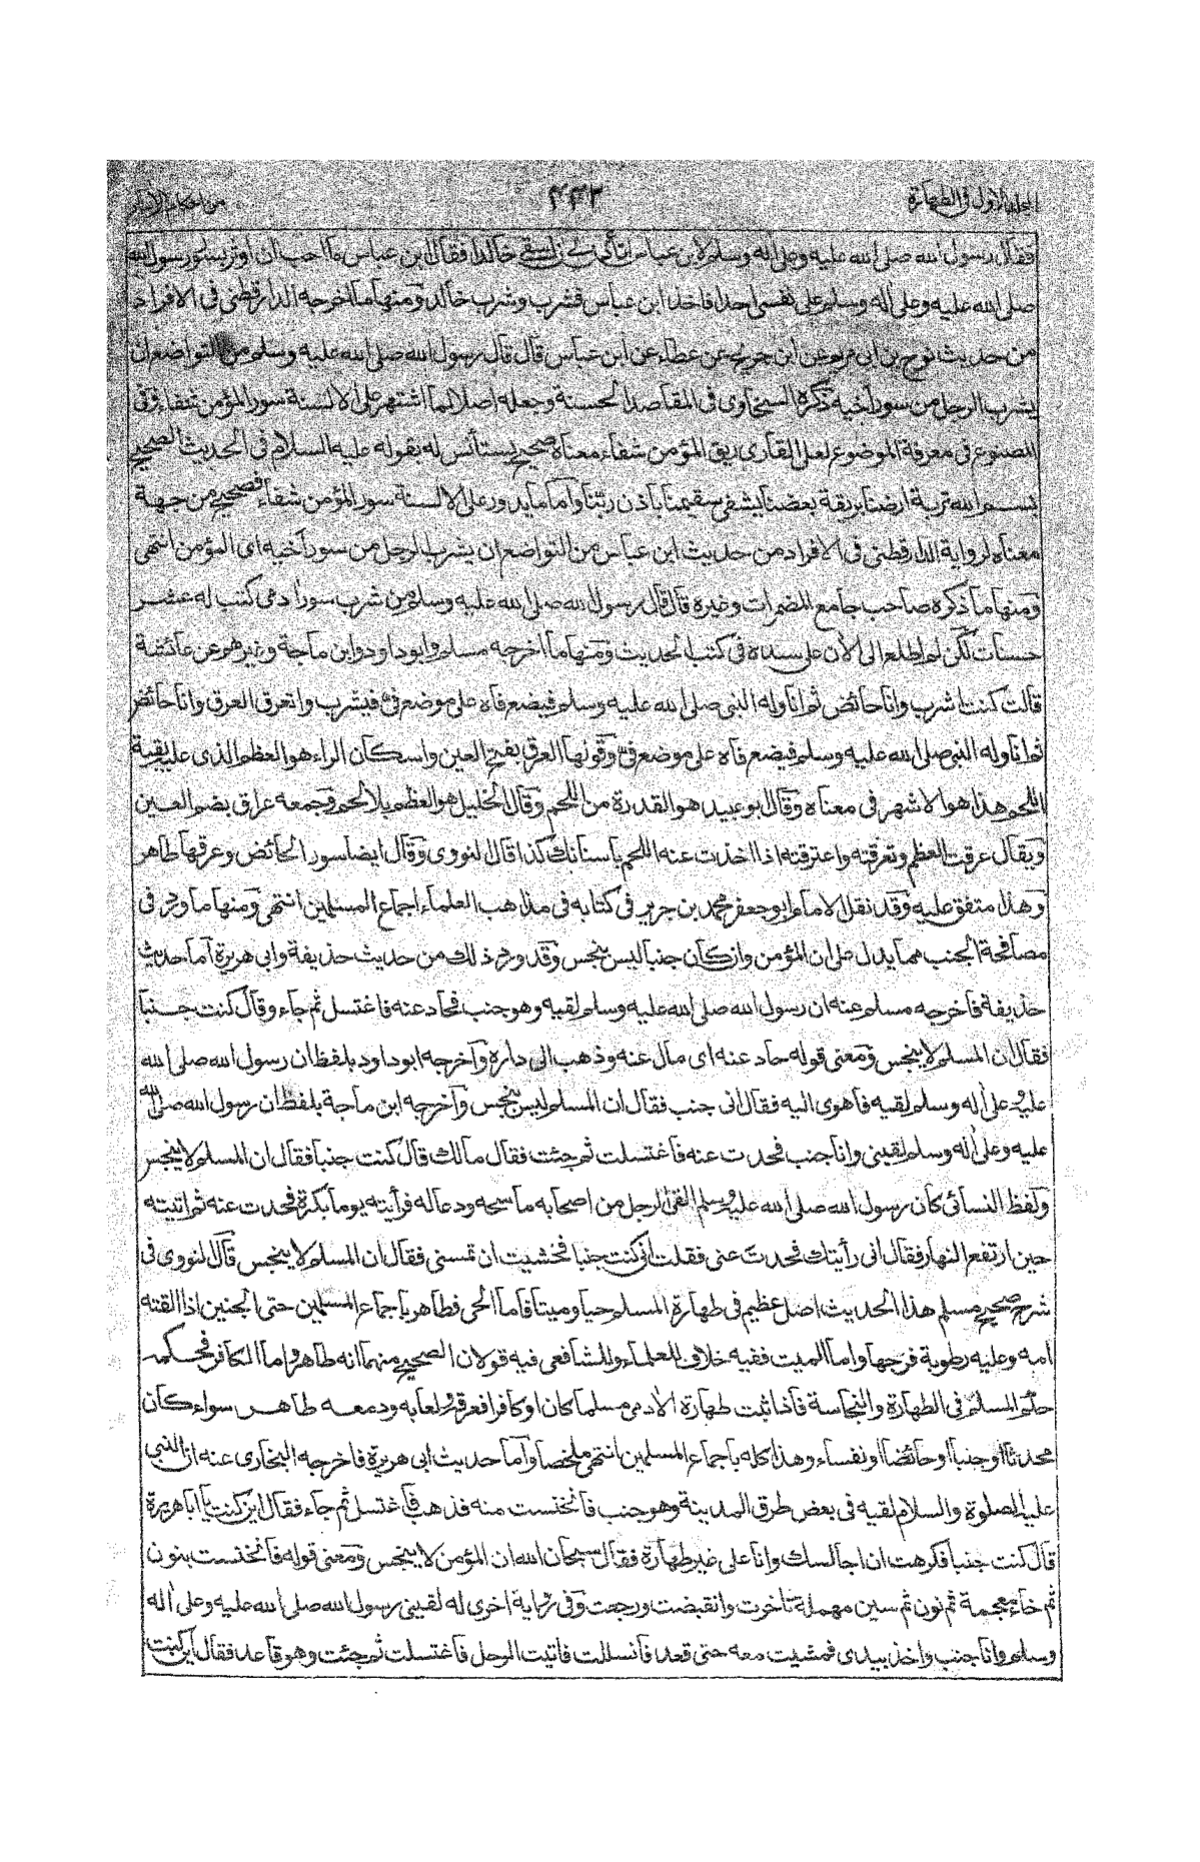 المجلد الاول فى الطهارة ۴۴۲ من احكام الآسار
فقال رسول الله صلى الله عليه وعلى اله وسلم لابن عباس خالدا فقال ابن عباس ما احب ان اوثر بسؤر رسول الله
صلى الله عليه وعلى اله وسلم على نفسى احدا فاخذ ابن عباس فشرب وشرب خالد ومنها ما اخرجه الدارقطنى فى الافراد
من حديث نوح بن ابى مريم عن ابن جريج عن عطاء عن ابن عباس قال قال رسول الله صلى الله عليه وسلم من التواضع ان
يشرب الرجل من سور اخيه ذكره السخاوى فى المقاصد الحسنة وجعله اصلا لما اشتهر على الالسنة سور المؤمن شفاء وفى
المصنوع فى معرفة الموضوع لعلى القارى ريق المؤمن شفاء معناه صحيح يستأنس له بقوله عليه السلام فى الحديث الصحيح
بسم الله تربة ارضنا بريقة بعضنا يشفى سقيمنا باذن ربنا واما ما يدور على الالسنة سور المؤمن شفاء فصحيح من جهة
معناه لرواية الدارقطنى فى الافراد من حديث ابن عباس من التواضع ان يشرب الرجل من سور اخيه اى المؤمن انتهى
ومنها ما ذكره صاحب جامع المضمرات وغيره قال قال رسول الله صلى الله عليه وسلم من شرب سور ادمى كتب له عشر
حسنات لكن لم اطلع الى الآن على سنده فى كتب الحديث ومنها ما اخرجه مسلم وابو داود وابن ماجة وغيرهم عن عائشة
قالت كنت اشرب وانا حائض ثم اناوله النبى صلى الله عليه وسلم فيضع فاه على موضع فى فيشرب واتعرق العرق وانا حائض
ثم اناوله النبى صلى الله عليه وسلم فيضع فاه على موضع فى وقولها العرق بفتح العين واسكان الراء هو العظم الذى عليه بقية
اللحم هذا هو الاشهر فى معناه وقال ابو عبيد هو القدرة من اللحم وقال الخليل هو العظم بلا لحم وجمعه عراق بضم العين
ويقال عرقت العظم وتعرقته واعترقته اذا اخذت عنه اللحم باسنانك كذا قال النووى وقال ايضا سور الحائض وعرقها طاهر
وهذا متفق عليه وقد نقل الامام ابو جعفر محمد بن جرير فى كتابه فى مذاهب العلماء اجماع المسلمين انتهى ومنها ما ورد فى
مصافحة الجنب مما يدل على ان المؤمن وان كان جنبا ليس بنجس وقد ورد ذلك من حديث حذيفة وابى هريرة اما حديث
حذيفة فاخرجه مسلم عنه ان رسول الله صلى الله عليه وسلم لقيه وهو جنب فحاد عنه فاغتسل ثم جاء وقال كنت جنبا
فقال ان المسلم لا ينجس ومعنى قوله حاد عنه اى مال عنه وذهب الى داره واخرجه ابو داود بلفظ ان رسول الله صلى الله
عليه وعلى اله وسلم لقيه فاهوى اليه فقال انى جنب فقال ان المسلم ليس بنجس واخرجه ابن ماجة بلفظ ان رسول الله صلى الله
عليه وعلى اله وسلم لقينى وانا جنب فحدت عنه فاغتسلت ثم جئت فقال مالك قال كنت جنبا فقال ان المسلم لا ينجس
ولفظ النسائى كان رسول الله صلى الله عليه وسلم القى الرجل من اصحابه ماسحه ودعا له فرأيته يوما بكرة فحدت عنه ثم اتيته
حين ارتفع النهار فقال انى رأيتك فحدت عنى فقلت انى كنت جنبا فخشيت ان تمسنى فقال ان المسلم لا ينجس قال النووى فى
شرح صحيح مسلم هذا الحديث اصل عظيم فى طهارة المسلم حيا وميتا فاما الحى فطاهر باجماع المسلمين حتى الجنين اذا القته
امه وعليه رطوبة فرجها واما الميت ففيه خلاف للعلماء وللشافعى فيه قولان الصحيح منهما انه طاهر واما الكافر فحكمه
حكم المسلم فى الطهارة والنجاسة فاذا ثبت طهارة الآدمى مسلما كان او كافرا فعرقه ولعابه ودمعه طاهر سواء كان
محدثا او جنبا او حائضا او نفساء وهذا كله باجماع المسلمين انتهى ملخصا واما حديث ابى هريرة فاخرجه البخارى عنه ان النبى
عليه الصلوة والسلام لقيه فى بعض طرق المدينة وهو جنب فانخنست منه فذهب فاغتسل ثم جاء فقال اين كنت يا ابا هريرة
قال كنت جنبا فكرهت ان اجالسك وانا على غير طهارة فقال سبحان الله ان المؤمن لا ينجس ومعنى قوله فانخنست بنون
ثم خاء معجمة ثم نون ثم سين مهملة تاخرت وانقبضت ورجعت وفى رواية اخرى له لقينى رسول الله صلى الله عليه وعلى اله
وسلم وانا جنب واخذ بيدى فمشيت معه حتى قعد فانسللت فاتيت الرحل فاغتسلت ثم جئت وهو قاعد فقال اين كنت